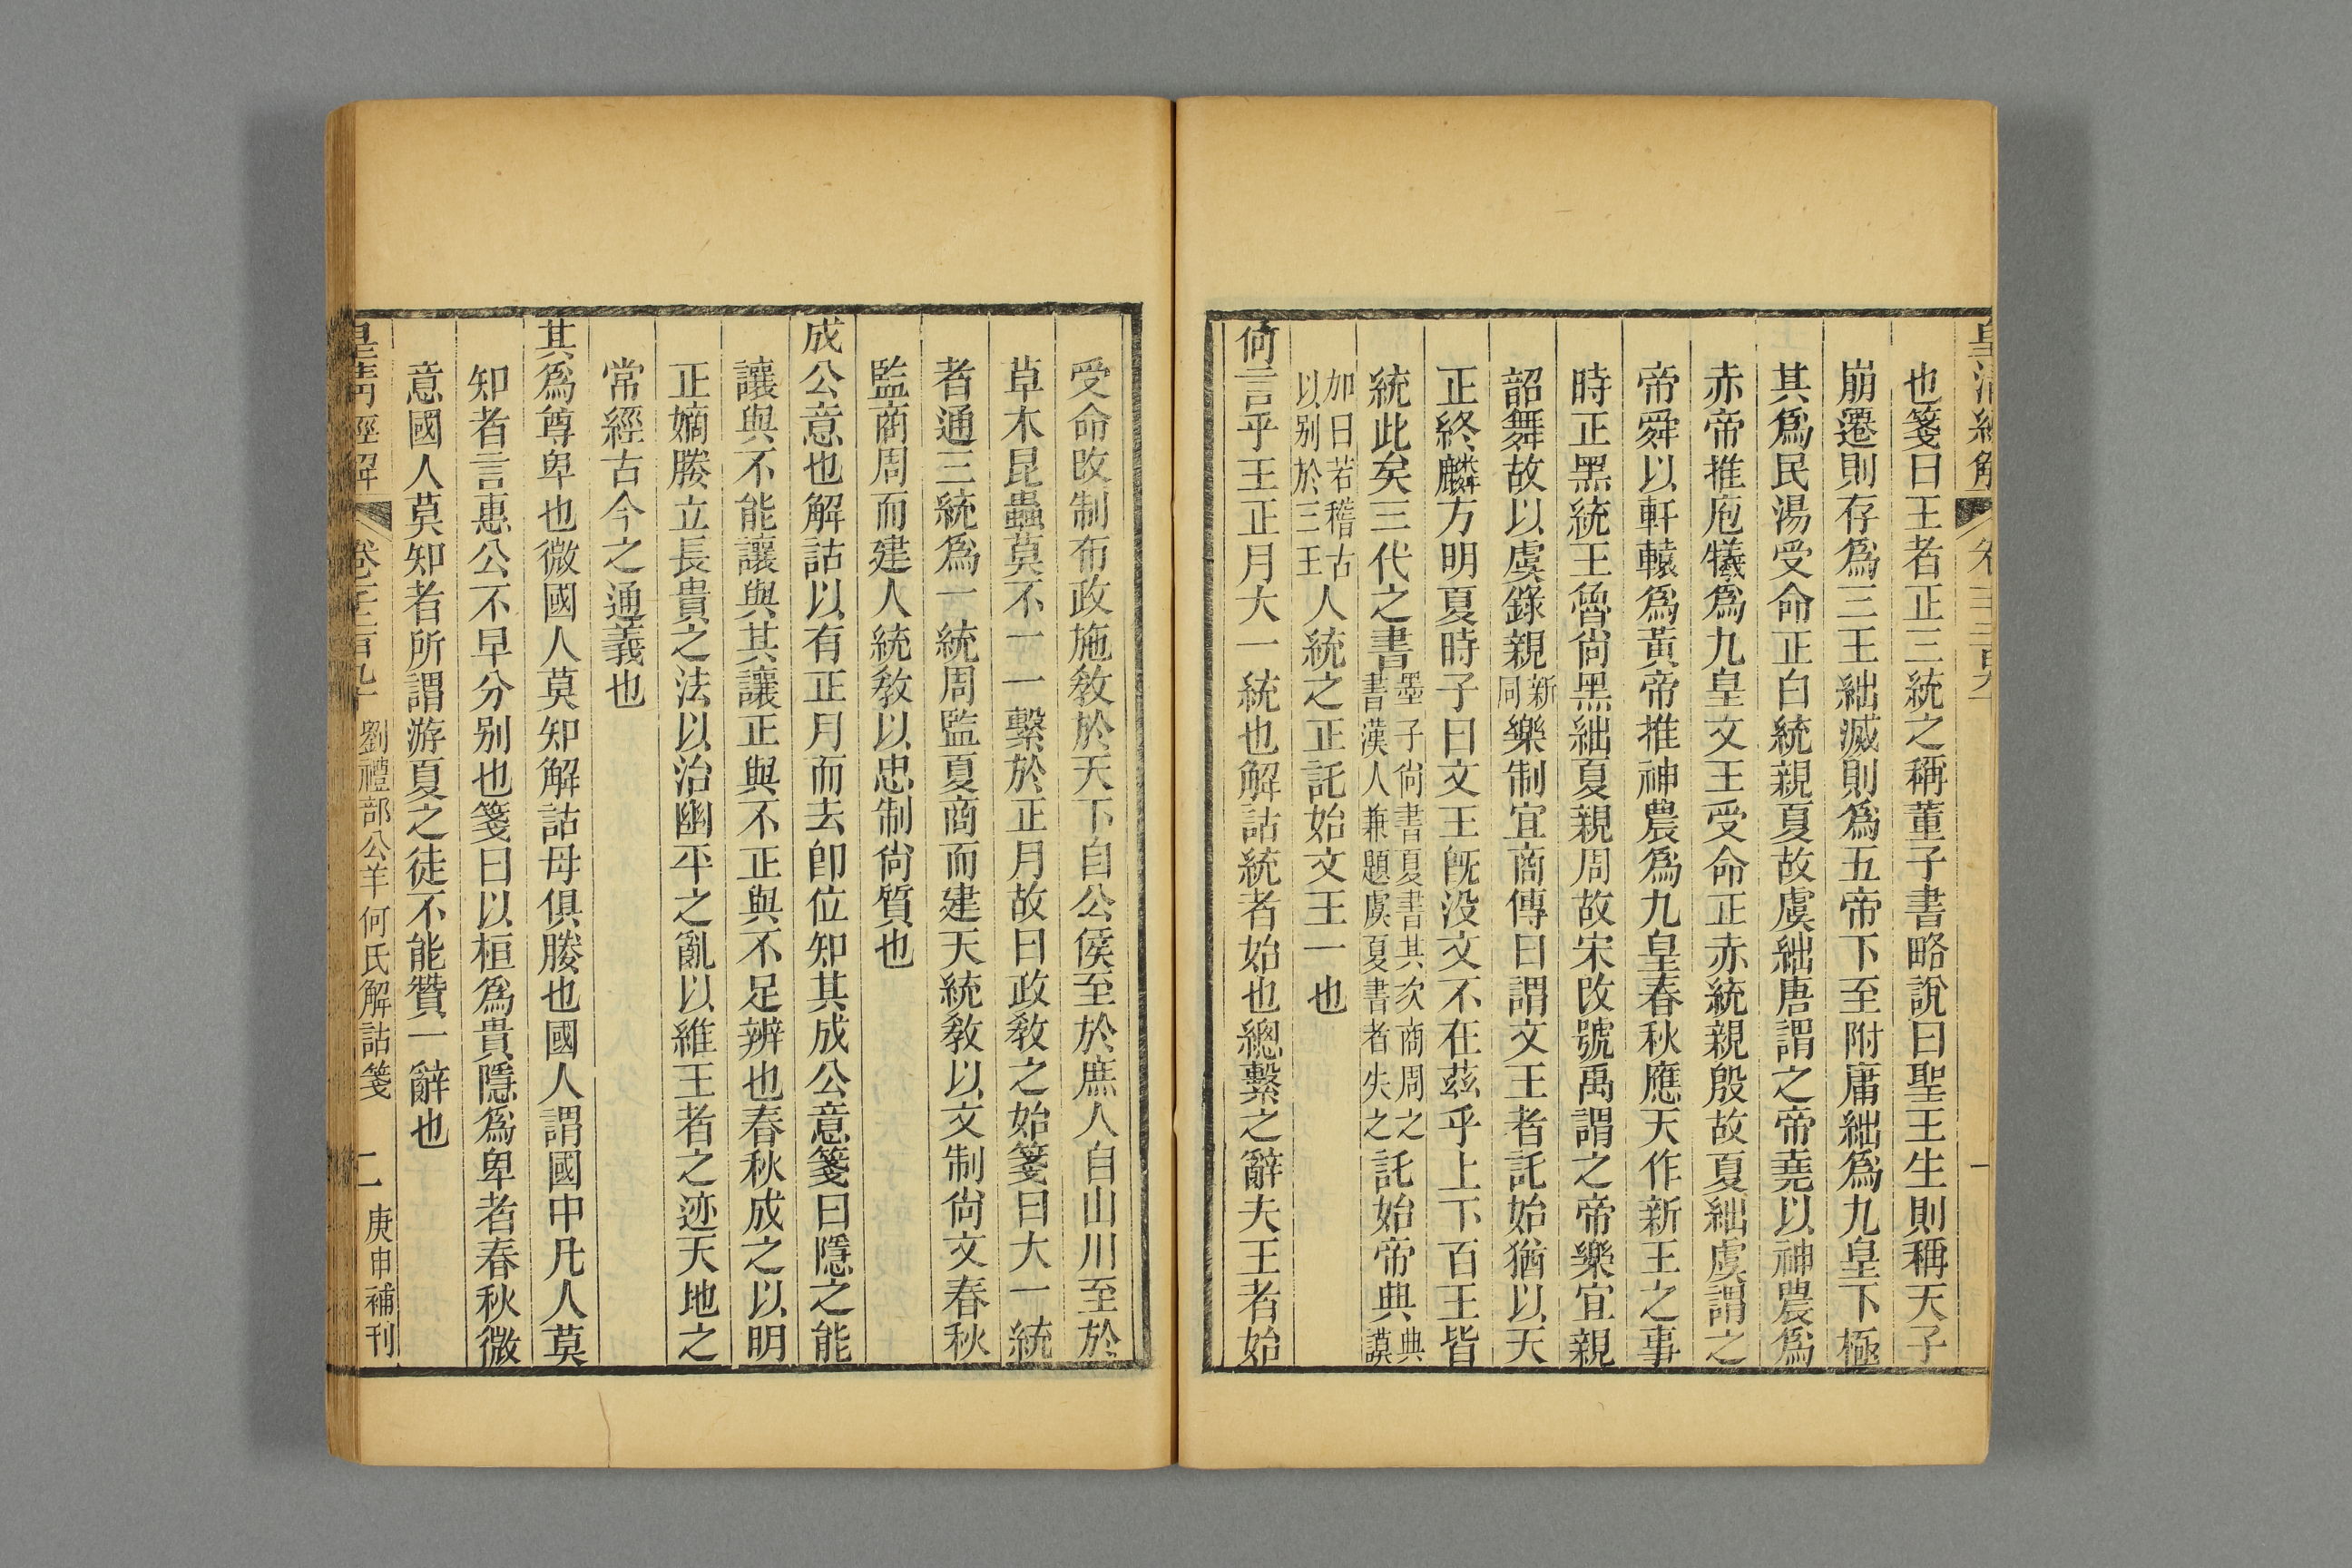 也箋曰王者正三統之稱董子書略說曰聖王生則稱天子
崩遷則存為三王絀滅則爲五帝下至附庸絀爲九皇下極
其爲民湯受命正白統親夏故虞絀唐謂之帝堯以神農爲
赤帝推庖犧爲九皇文王受命正赤統親殷故夏絀虞謂之
帝舜以軒轅爲黃帝推神農爲九皇春秋應天作新王之事
時正黑統王魯尙黑絀夏親周故宋改號禹謂之帝樂宜親
韶舞故以虞錄親新同樂制宜商傳曰謂文王者託始猶以天
正終麟方明夏時子曰文王旣没文不在茲乎上下百王皆
統此矣三代之書墨子尙書夏書其次商周之書漢人兼題虞夏書者失之託始帝典典謨
加曰若稽古以别於三王人統之正託始文王一也
何言乎王正月大一統也解詁統者始也總繫之辭夫王者始
受命改制布政施敎於天下自公侯至於庶人自山川至於
草木昆蟲莫不一一繫於正月故曰政敎之始箋曰大一統
者通三統爲一統周監夏商而建天統敎以文制尙文春秋
監商周而建人統敎以忠制尙質也
成公意也解詁以有正月而去卽位知其成公意箋曰隱之能
讓與不能讓與其讓正與不正與不足辨也春秋成之以明
正嫡媵立長貴之法以治幽平之亂以維王者之迹天地之
常經古今之通義也
其爲尊卑也微國人莫知解詁母俱媵也國人謂國中凡人莫
知者言惠公不早分别也箋曰以桓爲貴隱爲卑者春秋微
意國人莫知者所謂游夏之徒不能贊一辭也
皇淸經解 卷 劉禮部公羊何氏解詁箋 二 庚申補刊